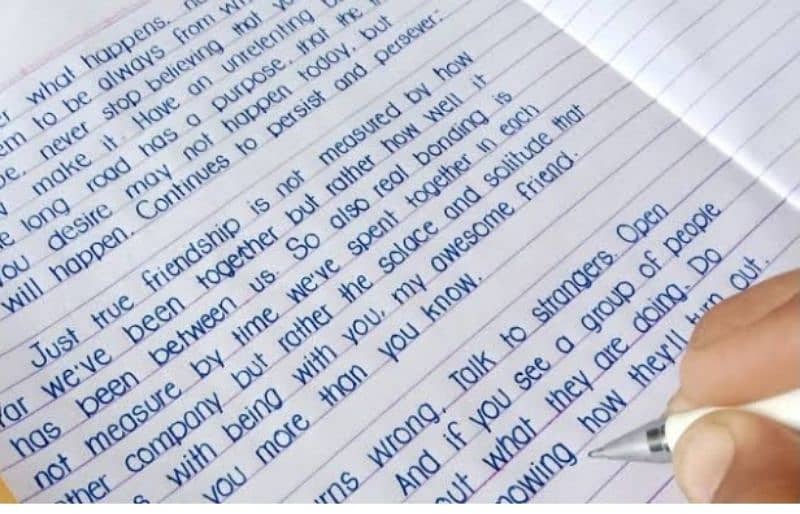 what happens.
to be always from
never stop believing that
make it. Have an unrelenting
long road has a purpose. that the
you desire may not happen today, but
will happen. Continues to persist and persever.
Just true friendship is not measured by how
far we've been together but rather how well it
has been between us. So also real bonding is
not measure by time we've spent together in each
other company but rather the solace and solitude that
with being with you, my awesome friend.
you more than you know.
wrong. Talk to strangers. Open
And if you see a group of people
out what they are doing. Do
how they'll turn out.